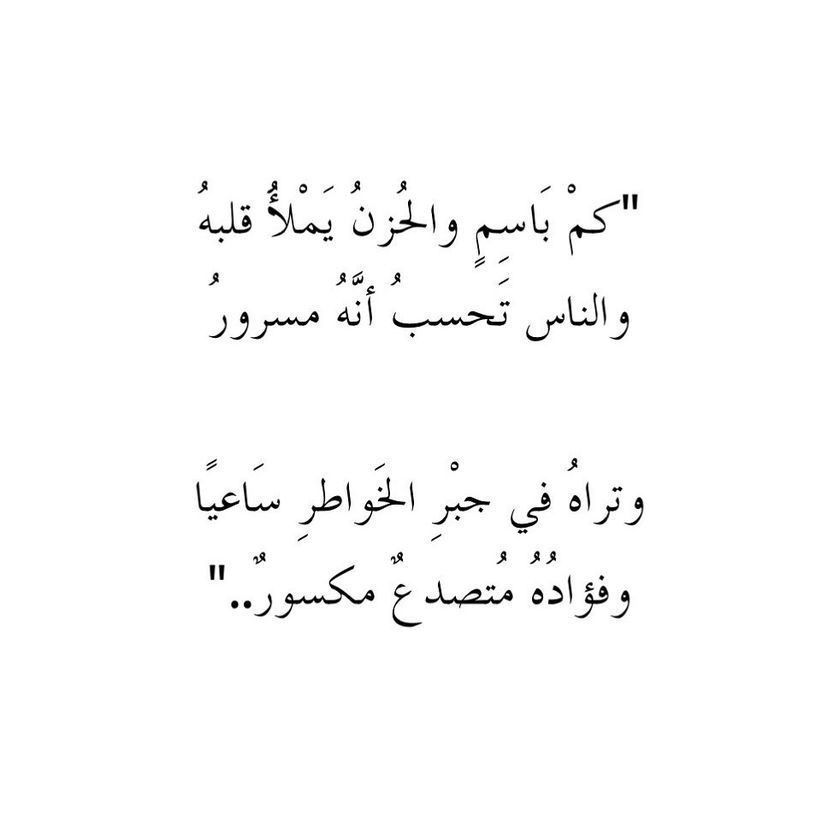 "كمْ بَاسِمٍ والحُزنُ يَمْلأُ قلبهُ
والناس تَحسبُ أنَّهُ مسرورُ
وتراهُ في جبْرِ الخَواطرِ سَاعيًا
وفؤادُهُ مُتصدعٌ مكسورٌ.."